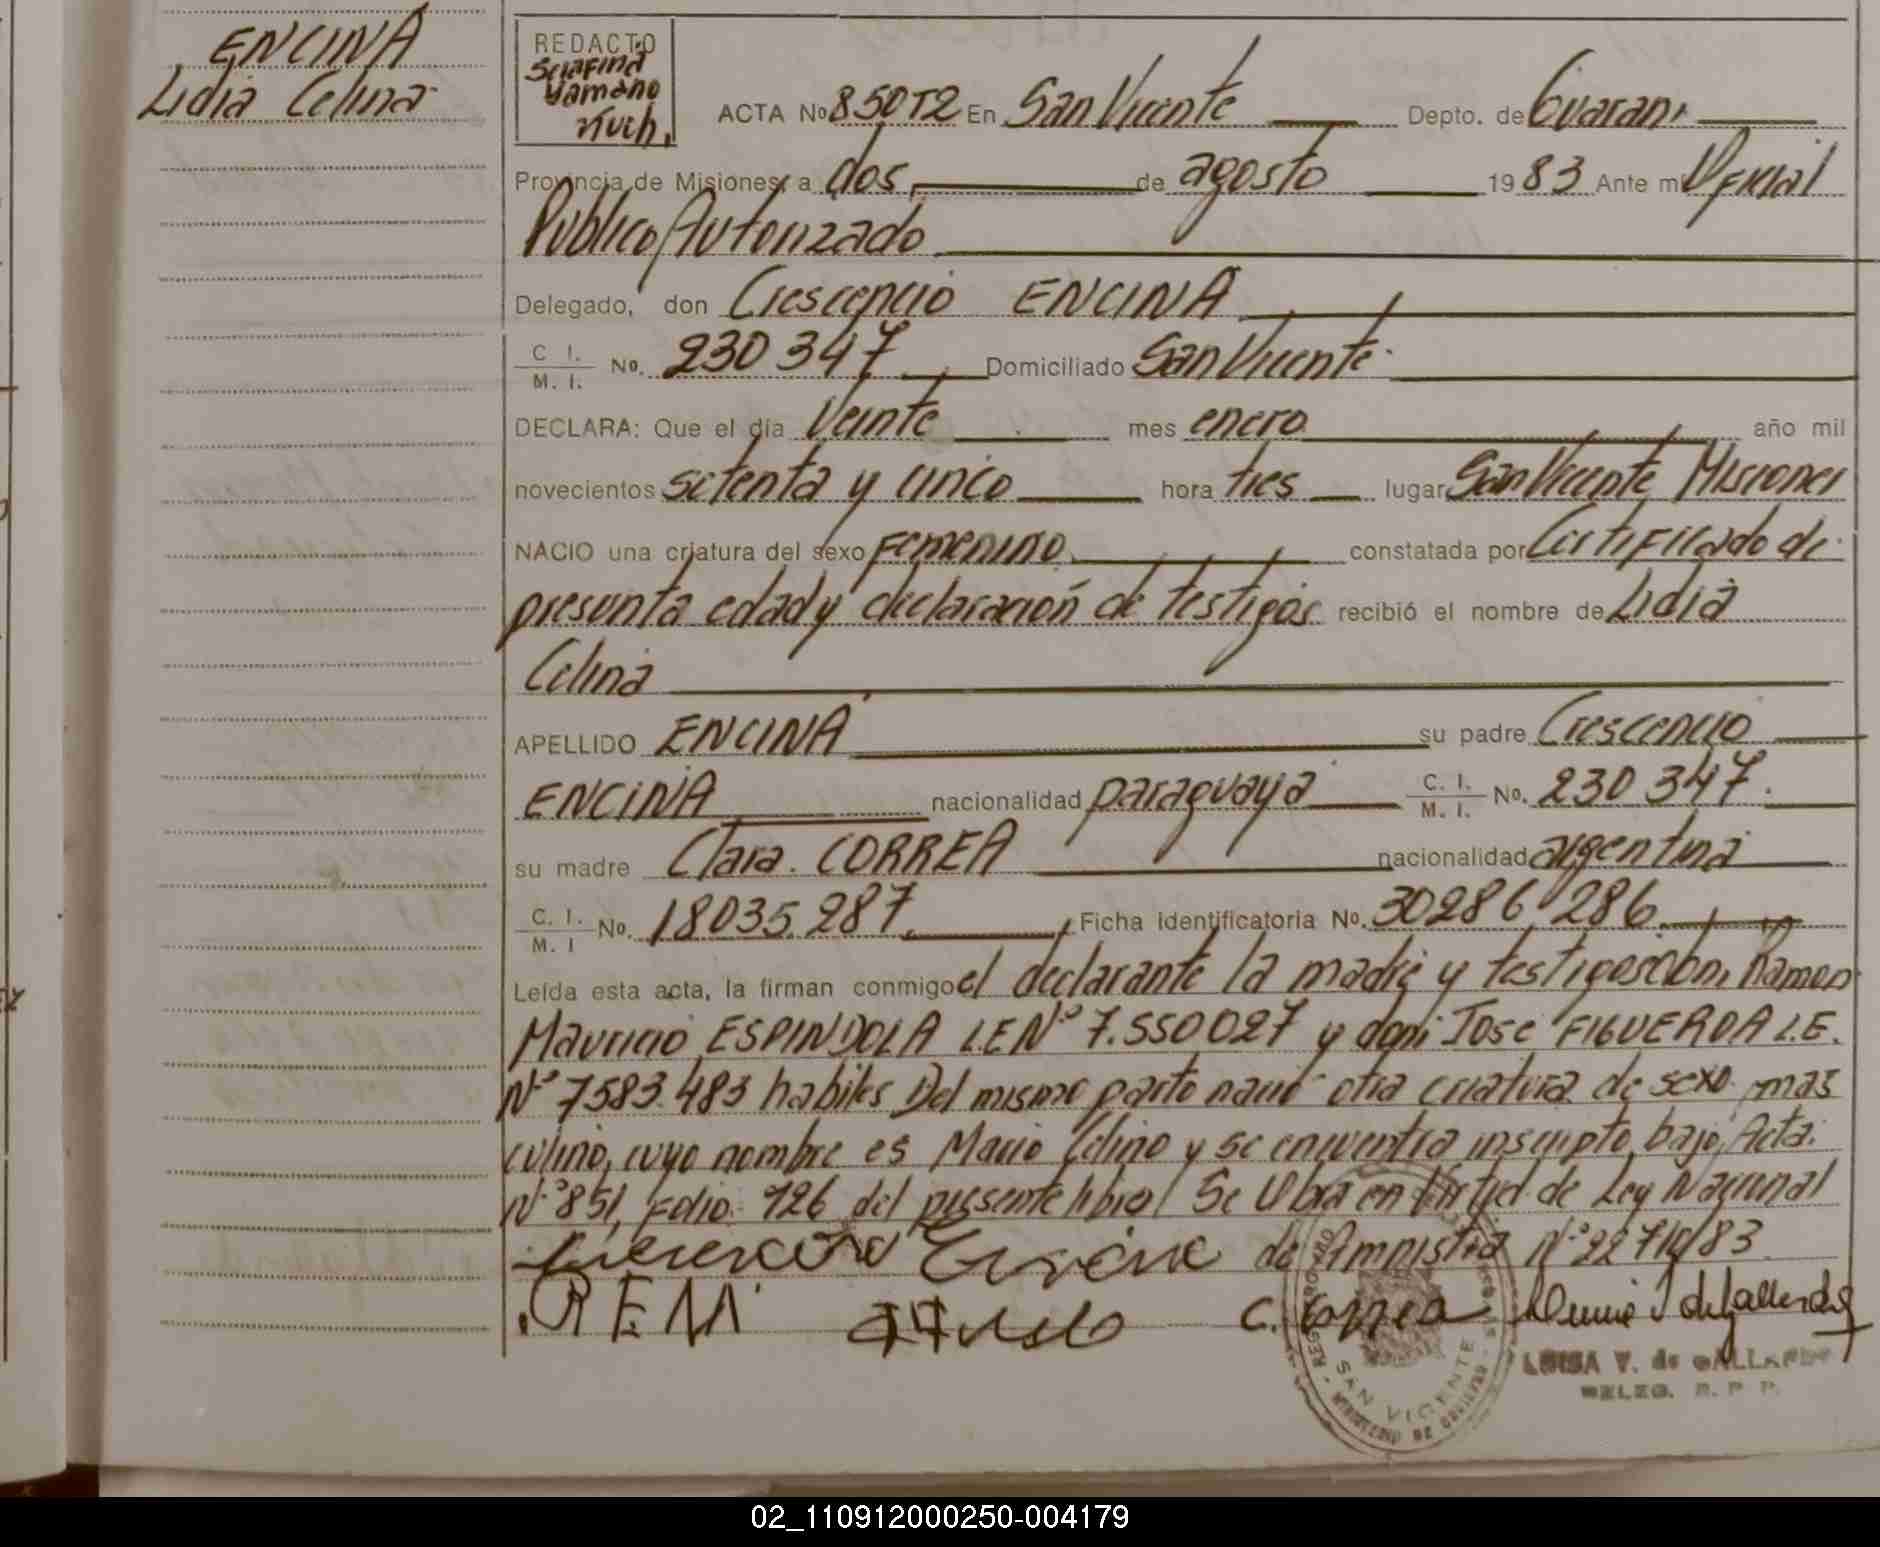 ENCINA
Lidia Celina
REDACTO
Serafina
Yamano
ACTA No 850 T2 En San Vicente Depto. de Guarani
Provincia de Misiones, a dos de agosto 1983 Ante mi Oficial
Publico Autorizado
Delegado, don Crescencio ENCINA
C. I. / M. I. No. 230 347 Domiciliado San Vicente
DECLARA: Que el día Veinte mes enero año mil
novecientos setenta y cinco hora tres lugar San Vicente Misiones
NACIO una criatura del sexo femenino constatada por Certificado de
presunta edad y declaración de testigos recibió el nombre de Lidia
Celina
APELLIDO ENCINA su padre Crescencio
ENCINA nacionalidad paraguaya C. I. / M. I. No. 230 347.
su madre Clara. CORREA nacionalidad argentina
C. I. / M. I No. 18035.287. Ficha identificatoria No. 30286 286
Leída esta acta, la firman conmigo el declarante la madre y testigos don, Ramon
Mauricio ESPINDOLA L.E Nº 7.550027 y don, Jose FIGUEROA L.E.
Nº 7583.483 habiles Del mismo parto nació otra criatura de sexo mas
culino, cuyo nombre es Mario Celino y se encuentra inscripto bajo Acta
Nº 851, Folio 126 del presente libro/ Se labra en Virtud de Ley Nacional
de Amnistia Nº 22710/83
R E M
C. Correa
LUISA V. de GALLARDO
DELEG. R. P. P.
SAN VICENTE
02_110912000250-004179